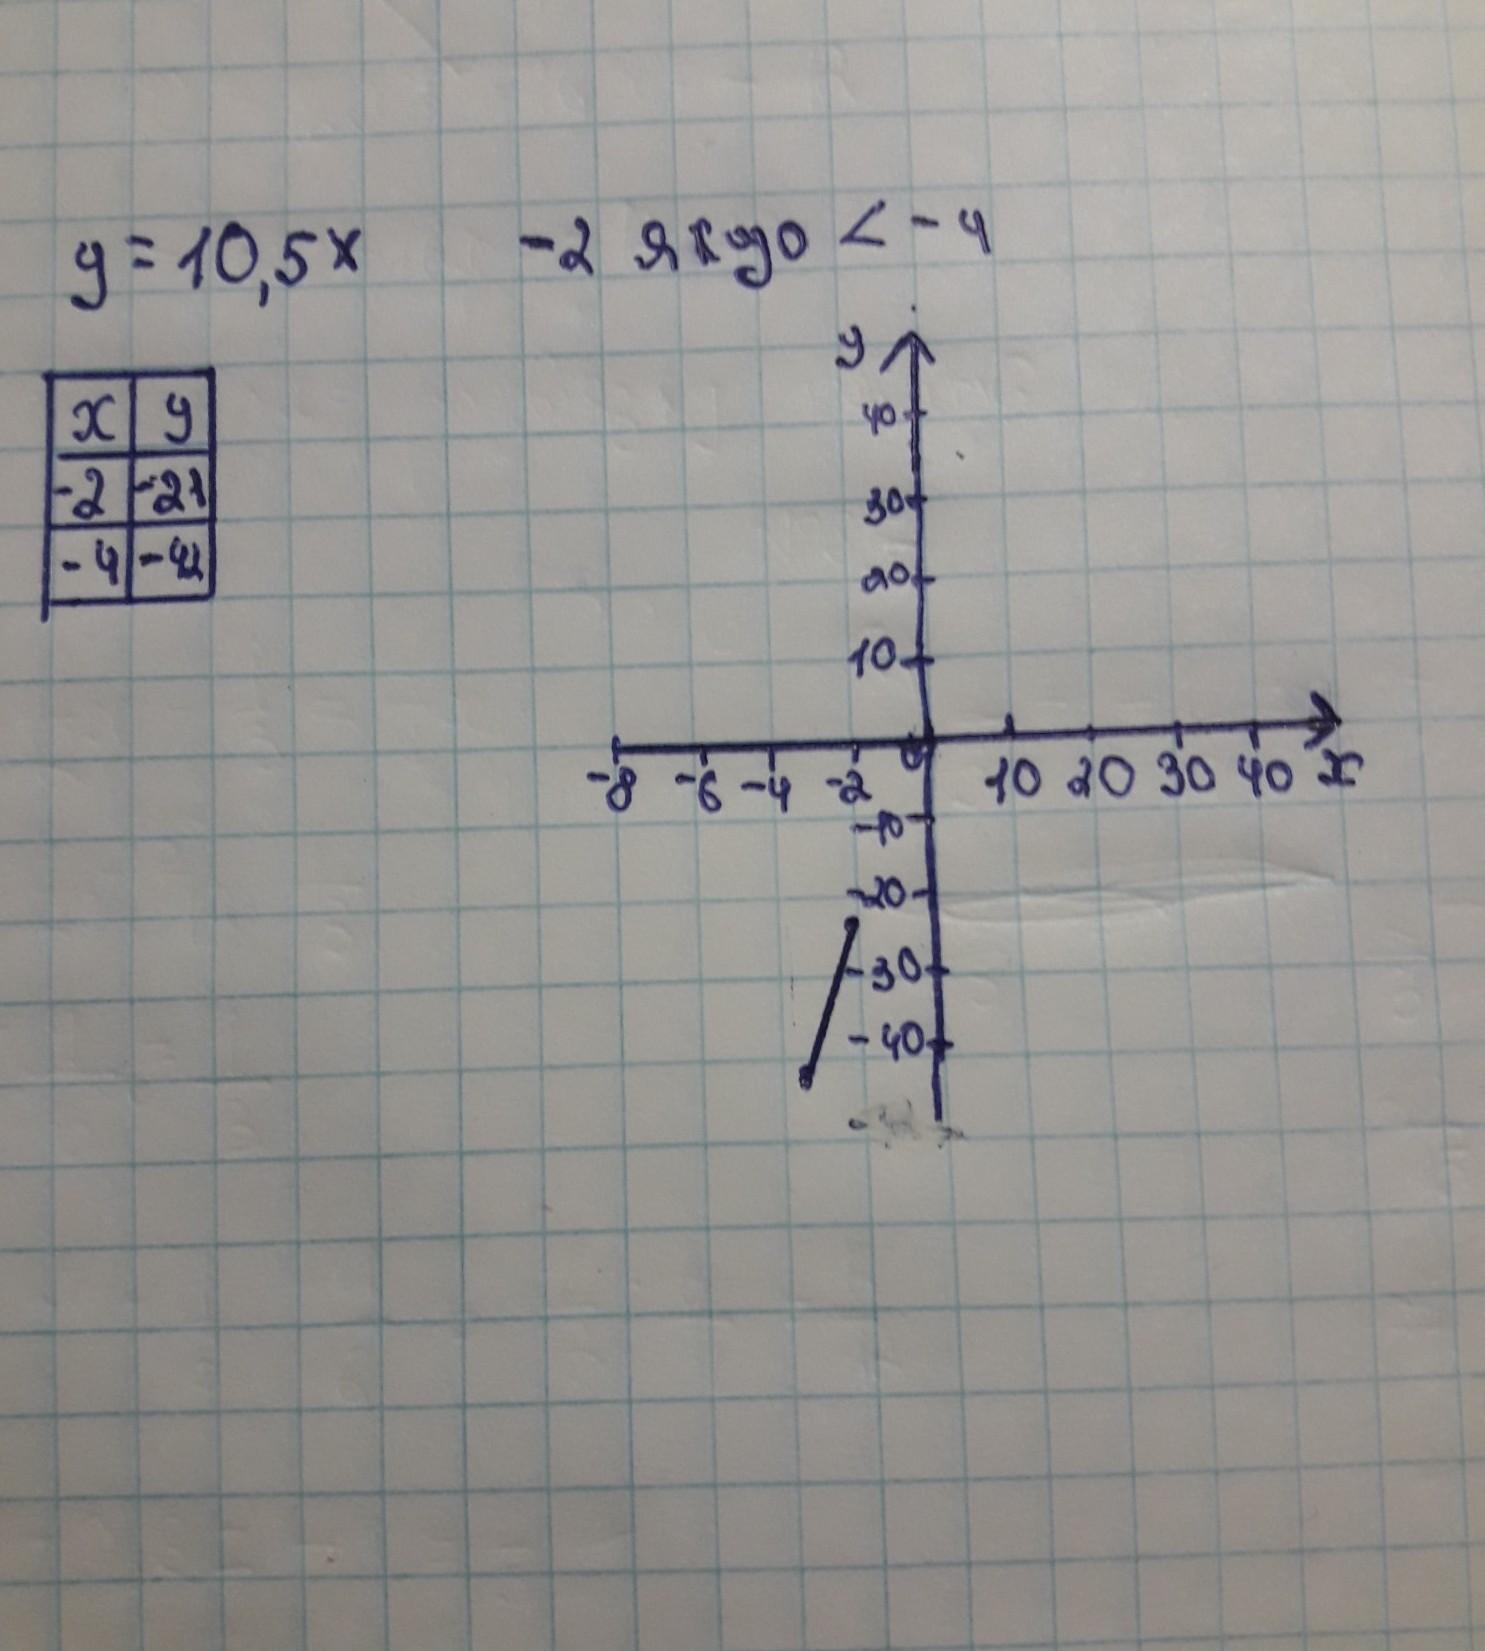 y = 10,5x -2 якщо < -4
x y
-2 -21
-4 -42
y
40
30
20
10
-8 -6 -4 -2 0 10 20 30 40 x
-10
-20
-30
-40